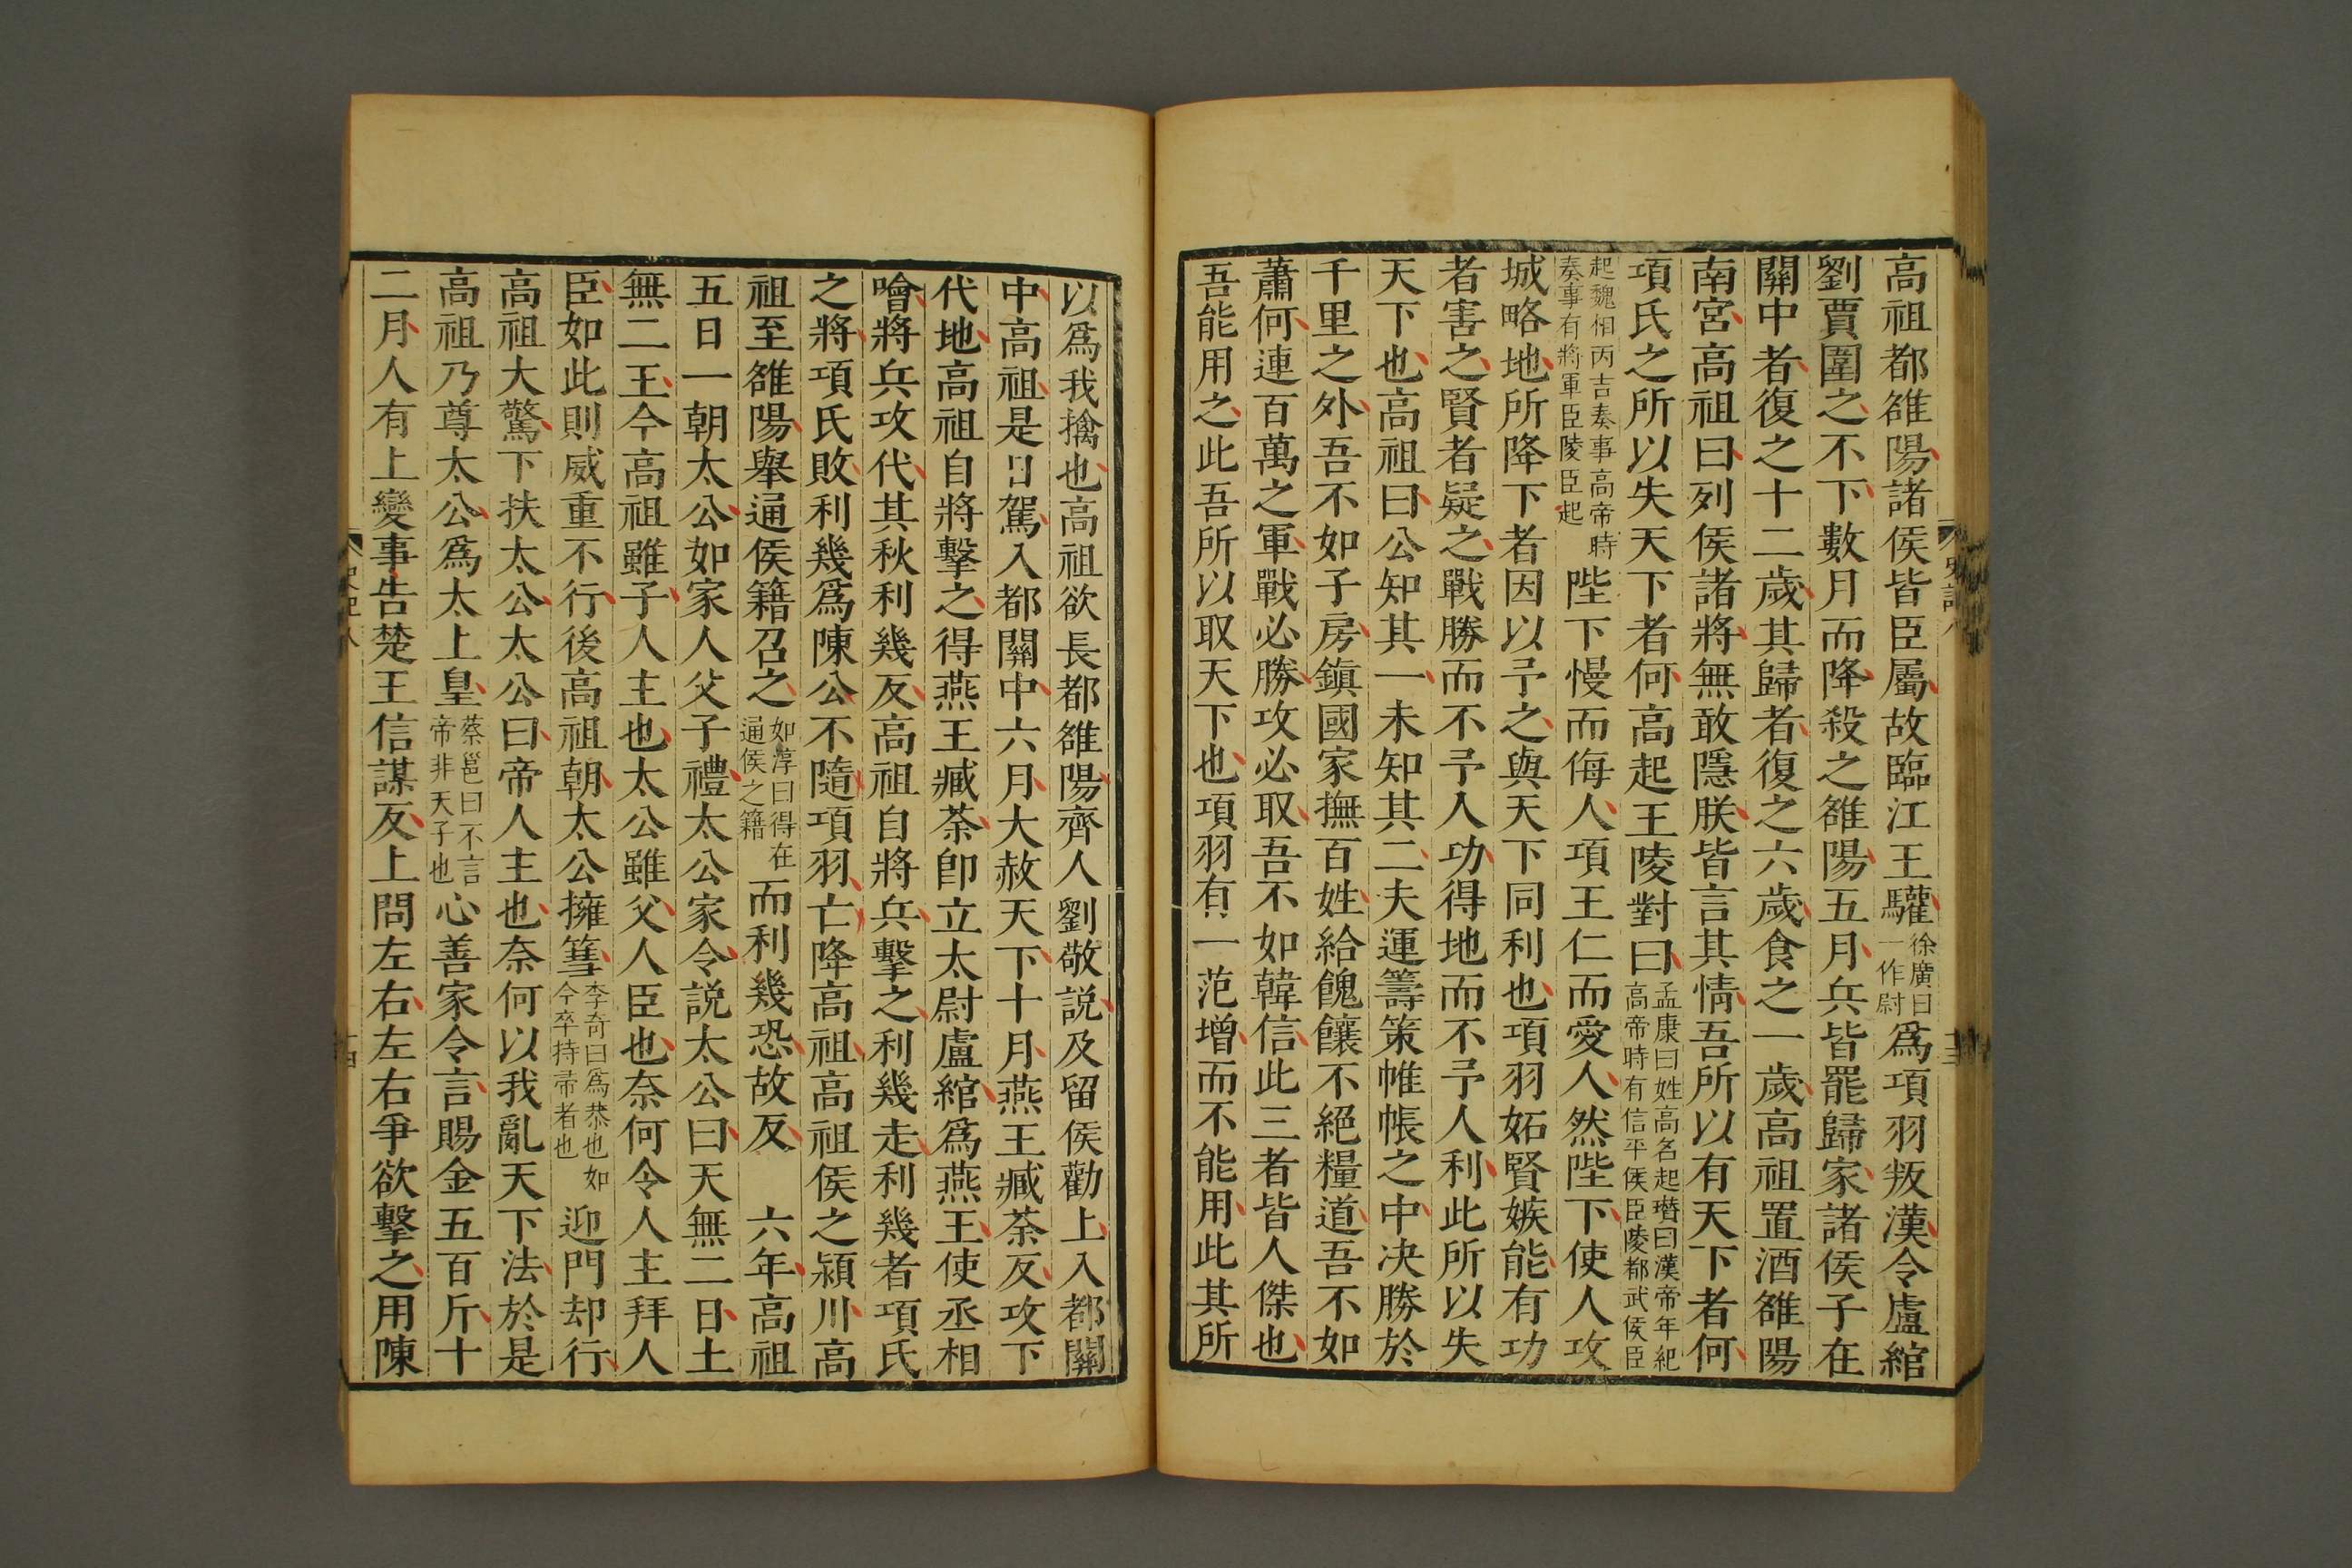 高祖都雒陽諸侯皆臣屬故臨江王驩徐廣曰一作尉爲項羽叛漢令盧綰
劉賈圍之不下數月而降殺之雒陽五月兵皆罷歸家諸侯子在
關中者復之十二歲其歸者復之六歲食之一歲高祖置酒雒陽
南宮高祖曰列侯諸將無敢隱朕皆言其情吾所以有天下者何
項氏之所以失天下者何高起王陵對曰孟康曰姓高名起瓚曰漢帝年紀高帝時有信平侯臣陵都武侯臣
起魏相丙吉奏事高帝時奏事有將軍臣陵臣起陛下慢而侮人項王仁而愛人然陛下使人攻
城略地所降下者因以予之與天下同利也項羽妬賢嫉能有功
者害之賢者疑之戰勝而不予人功得地而不予人利此所以失
天下也高祖曰公知其一未知其二夫運籌策帷帳之中决勝於
千里之外吾不如子房鎮國家撫百姓給餽饟不絕糧道吾不如
蕭何連百萬之軍戰必勝攻必取吾不如韓信此三者皆人傑也
吾能用之此吾所以取天下也項羽有一范增而不能用此其所
以爲我擒也高祖欲長都雒陽齊人劉敬説及留侯勸上入都關
中高祖是日駕入都關中六月大赦天下十月燕王臧荼反攻下
代地高祖自將擊之得燕王臧荼卽立太尉盧綰爲燕王使丞相
噲將兵攻代其秋利幾反高祖自將兵擊之利幾走利幾者項氏
之將項氏敗利幾爲陳公不隨項羽亡降高祖高祖侯之潁川高
祖至雒陽舉通侯籍召之如淳曰得在通侯之籍而利幾恐故反 六年高祖
五日一朝太公如家人父子禮太公家令説太公曰天無二日土
無二王今高祖雖子人主也太公雖父人臣也奈何令人主拜人
臣如此則威重不行後高祖朝太公擁篲李奇曰爲恭也如今卒持帚者也迎門却行
高祖大驚下扶太公太公曰帝人主也奈何以我亂天下法於是
高祖乃尊太公爲太上皇蔡邕曰不言帝非天子也心善家令言賜金五百斤十
二月人有上變事告楚王信謀反上問左右左右爭欲擊之用陳